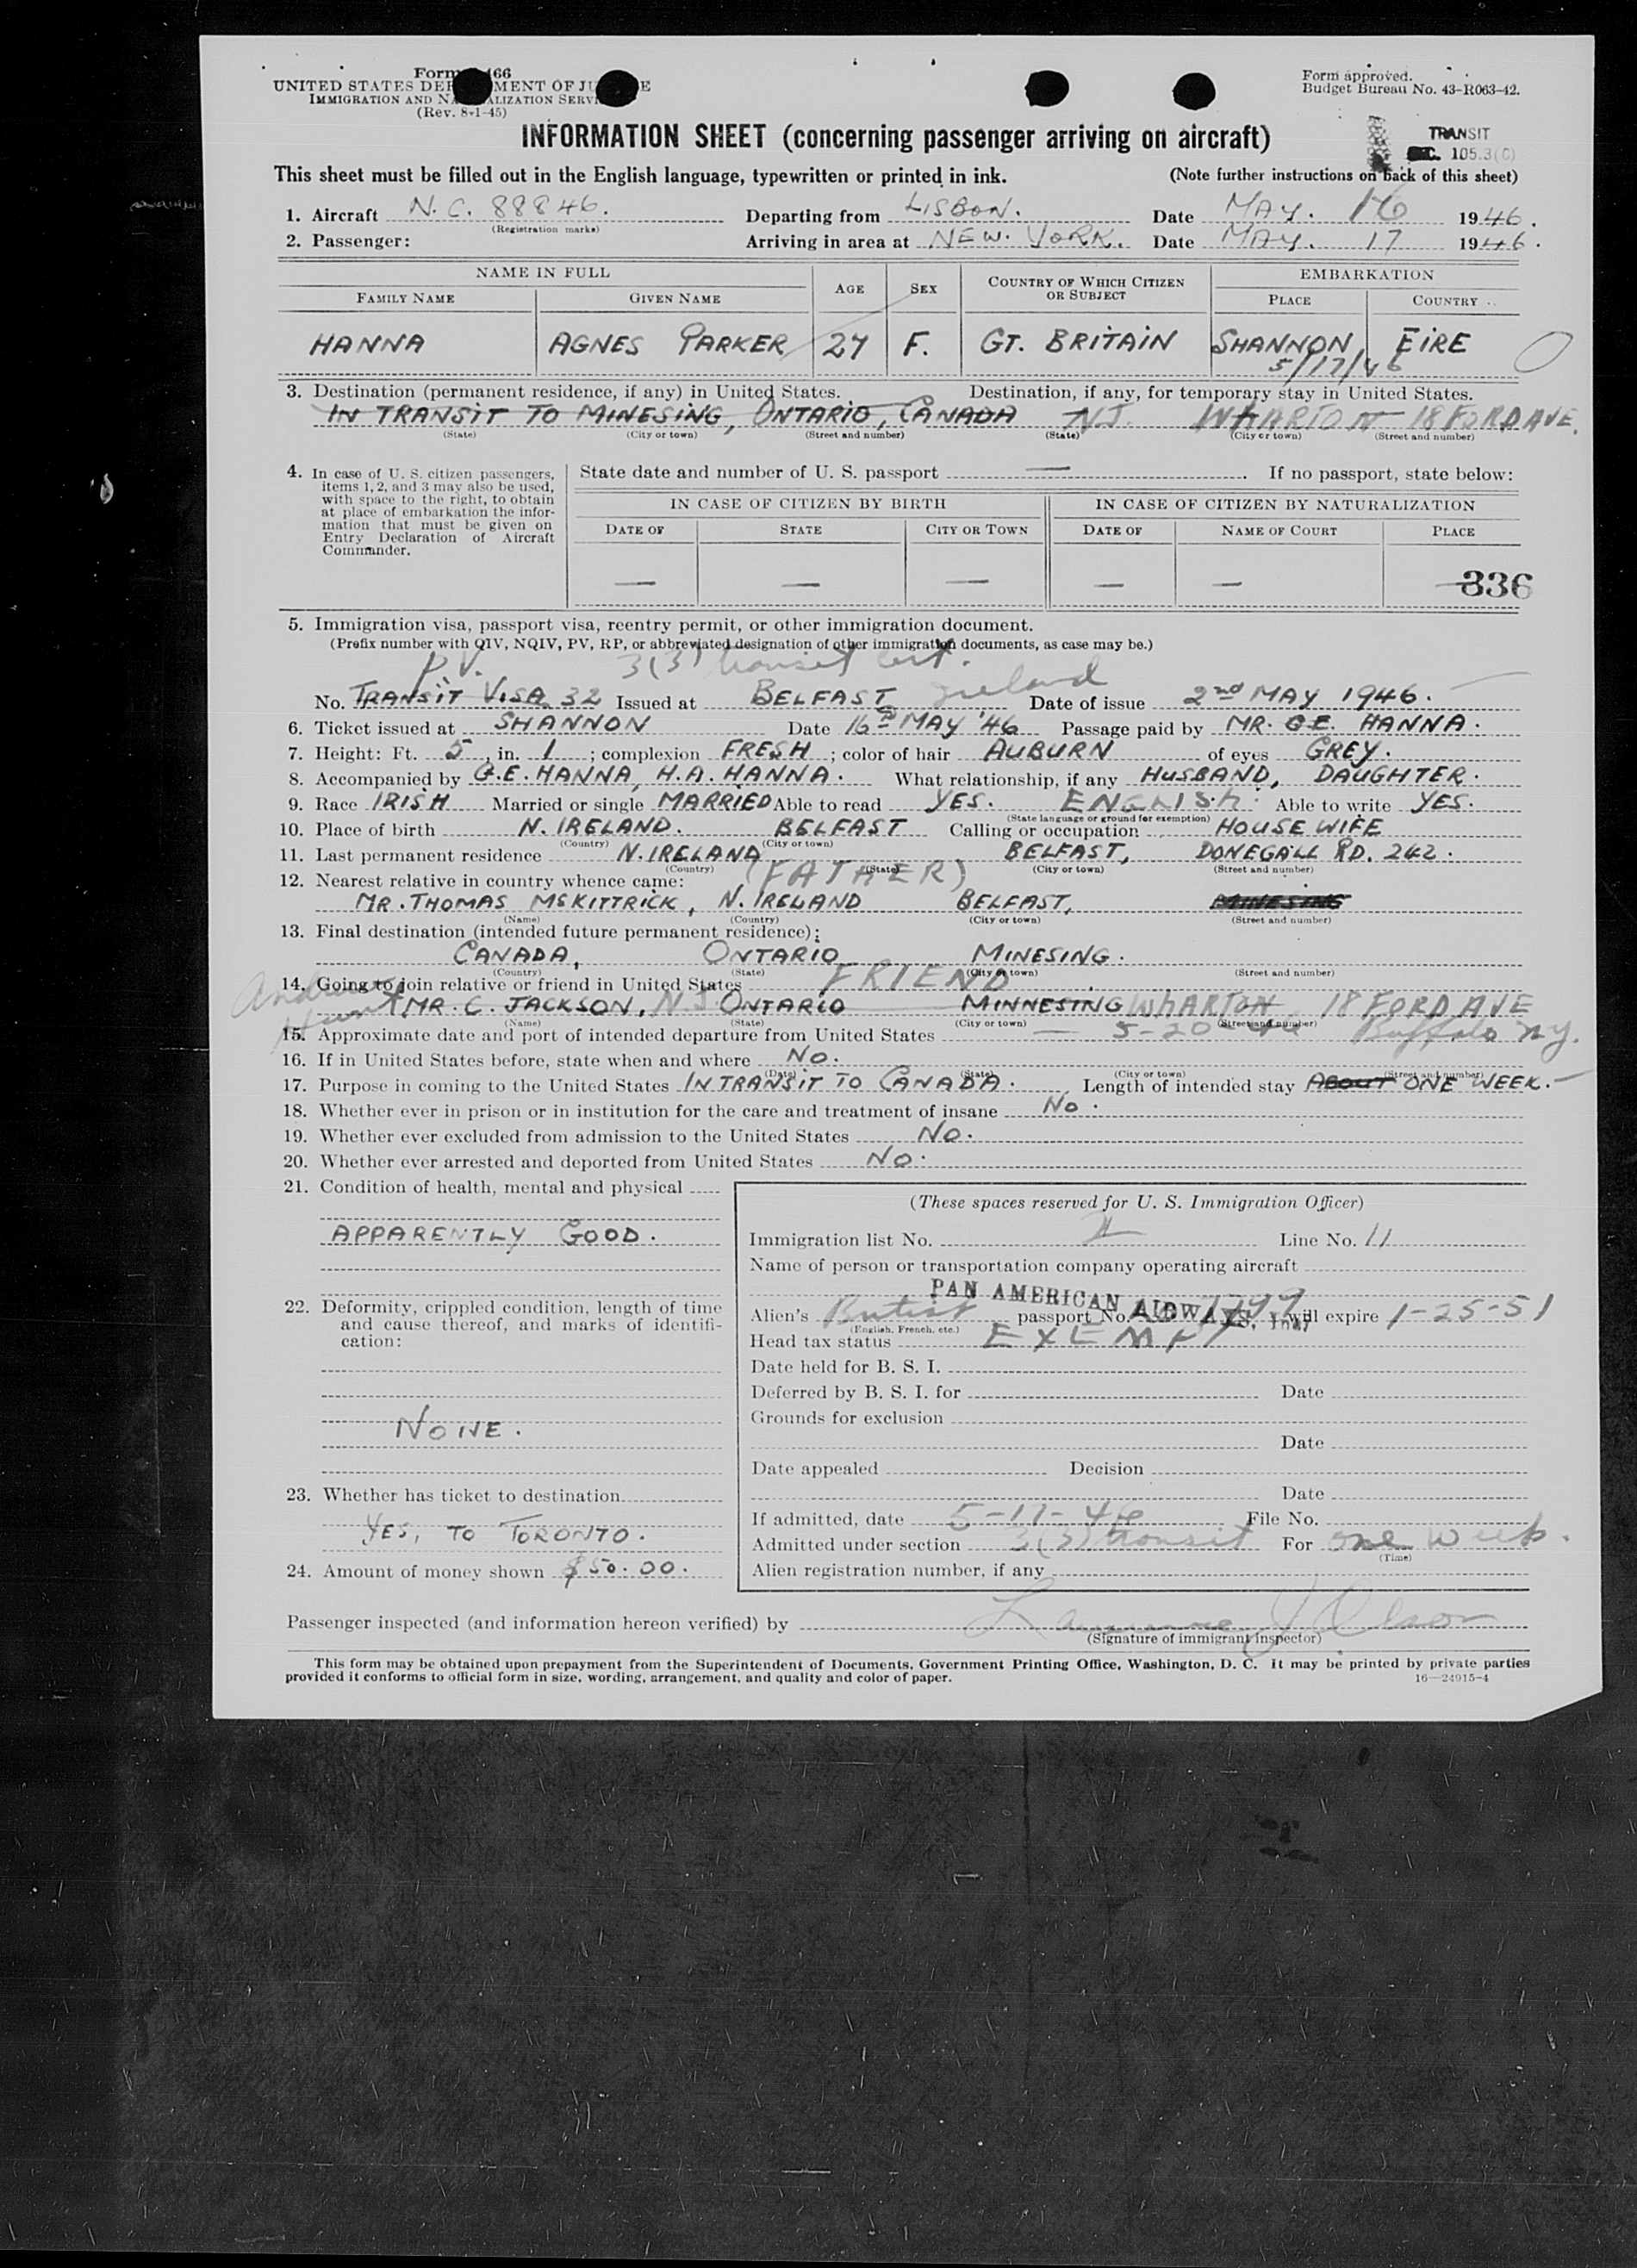 Form 466
UNITED STATES DEPARTMENT OF JUSTICE
IMMIGRATION AND NATURALIZATION SERVICE
(Rev. 8-1-45)
Form approved.
Budget Bureau No. 43-R063-42.
INFORMATION SHEET (concerning passenger arriving on aircraft)
TRANSIT
105.3(C)
This sheet must be filled out in the English language, typewritten or printed in ink. (Note further instructions on back of this sheet)
1. Aircraft N.C. 88846. Departing from LISBON. Date MAY. 16 1946.
(Registration marks)
2. Passenger: Arriving in area at NEW. YORK. Date MAY. 17 1946.
NAME IN FULL AGE SEX COUNTRY OF WHICH CITIZEN OR SUBJECT EMBARKATION
FAMILY NAME GIVEN NAME PLACE COUNTRY
HANNA AGNES PARKER 27 F. GT. BRITAIN SHANNON, EIRE
5/17/46
3. Destination (permanent residence, if any) in United States. Destination, if any, for temporary stay in United States.
IN TRANSIT TO MINESING, ONTARIO, CANADA NJ. WHARTON 18 FORD AVE.
(State) (City or town) (Street and number) (State) (City or town) (Street and number)
4. In case of U. S. citizen passengers, items 1, 2, and 3 may also be used, with space to the right, to obtain at place of embarkation the information that must be given on Entry Declaration of Aircraft Commander.
State date and number of U. S. passport — . If no passport, state below:
IN CASE OF CITIZEN BY BIRTH IN CASE OF CITIZEN BY NATURALIZATION
DATE OF STATE CITY OR TOWN DATE OF NAME OF COURT PLACE
— — — — — — 336
5. Immigration visa, passport visa, reentry permit, or other immigration document.
(Prefix number with QIV, NQIV, PV, RP, or abbreviated designation of other immigration documents, as case may be.)
P.V. 3(3) transit cert.
No. TRANSIT VISA 32 Issued at BELFAST Ireland Date of issue 2nd MAY 1946.
6. Ticket issued at SHANNON Date 16th MAY '46 Passage paid by MR. G.E. HANNA.
7. Height: Ft. 5, in. 1; complexion FRESH; color of hair AUBURN of eyes GREY.
8. Accompanied by G.E. HANNA, H.A. HANNA. What relationship, if any HUSBAND, DAUGHTER.
9. Race IRISH Married or single MARRIED Able to read YES. ENGLISH. Able to write YES.
(State language or ground for exemption)
10. Place of birth N. IRELAND. BELFAST Calling or occupation HOUSE WIFE
(Country) (City or town)
11. Last permanent residence N. IRELAND BELFAST, DONEGALL RD. 242.
(Country) (State) (City or town) (Street and number)
12. Nearest relative in country whence came: (FATHER)
MR. THOMAS McKITTRICK, N. IRELAND BELFAST, MINESING
(Name) (Country) (City or town) (Street and number)
13. Final destination (intended future permanent residence):
CANADA, ONTARIO MINESING.
(Country) (State) (City or town) (Street and number)
14. Going to join relative or friend in United States FRIEND
MR. C. JACKSON, N.J. ONTARIO MINNESING WHARTON, 18 FORD AVE
(Name) (State) (City or town) (Street and number)
15. Approximate date and port of intended departure from United States — 5-20-46 Buffalo NY.
16. If in United States before, state when and where No.
(Date) (State) (City or town) (Street and number)
17. Purpose in coming to the United States IN TRANSIT TO CANADA. Length of intended stay ABOUT ONE WEEK.
18. Whether ever in prison or in institution for the care and treatment of insane No.
19. Whether ever excluded from admission to the United States No.
20. Whether ever arrested and deported from United States No.
21. Condition of health, mental and physical
APPARENTLY GOOD.
22. Deformity, crippled condition, length of time and cause thereof, and marks of identification:
NONE.
23. Whether has ticket to destination
YES, TO TORONTO.
24. Amount of money shown $50.00.
(These spaces reserved for U. S. Immigration Officer)
Immigration list No. Line No. 11
Name of person or transportation company operating aircraft
PAN AMERICAN AIRWAYS, Inc.
Alien's British passport No. will expire 1-25-51
(English, French, etc.)
Head tax status EXEMPT
Date held for B. S. I.
Deferred by B. S. I. for Date
Grounds for exclusion
Date
Date appealed Decision
Date
If admitted, date 5-17-46 File No.
Admitted under section 3(3) transit For one week.
(Time)
Alien registration number, if any
Passenger inspected (and information hereon verified) by
(Signature of immigrant inspector)
This form may be obtained upon prepayment from the Superintendent of Documents, Government Printing Office, Washington, D. C. It may be printed by private parties
provided it conforms to official form in size, wording, arrangement, and quality and color of paper. 16—24915-4